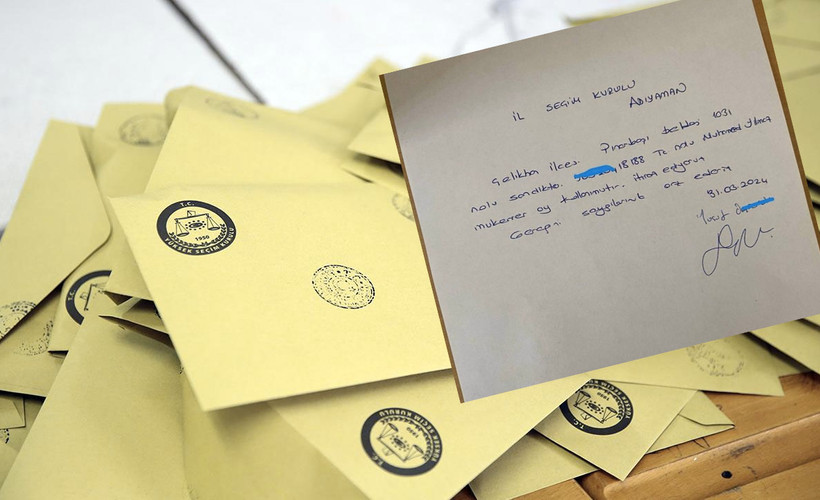 İL SEÇİM KURULU
ADIYAMAN
Çelikhan ilçesi Pınarbaşı beldesi 1031
nolu sandıkta 18188 Tc nolu Muhammed Yılmaz
mükerrer oy kullanmıştır. ihbar ediyorum
Gereğini saygılarımla arz ederim
31.03.2024
Yusuf
T.C.
1950
YÜKSEK SEÇİM KURULU
T.C.
1950
YÜKSEK SEÇİM KURULU
T.C.
YÜKSEK SEÇİM KURULU